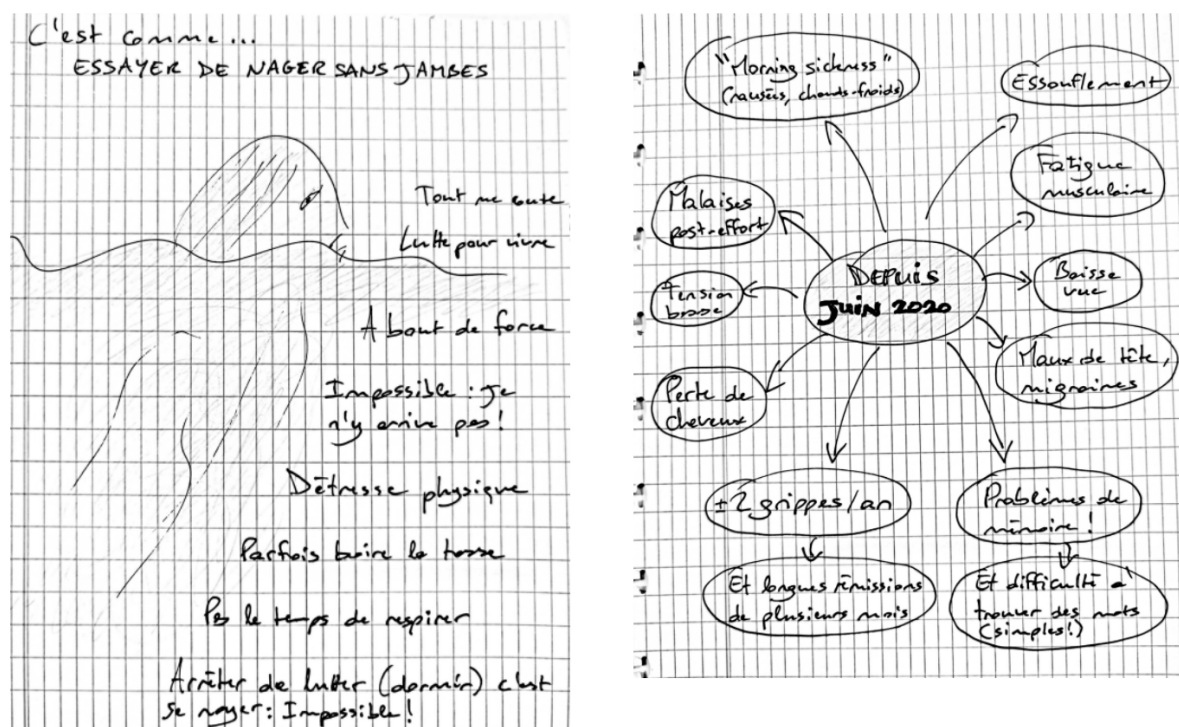 C'est comme...
ESSAYER DE NAGER SANS JAMBES
Tout me coute
Lutte pour vivre
A bout de force
Impossible : je
n'y arrive pas !
Détresse physique
Parfois boire la tasse
Pas le temps de respirer
Arrêter de lutter (dormir) c'est
se noyer : Impossible !
"Morning sickness"
(nausées, chauds-froids)
Essouflement
Fatigue
musculaire
Malaises
post-effort
DEPUIS
JUIN 2020
Tension
basse
Baisse
vue
Maux de tête,
migraines
Perte de
cheveux
±2 grippes/an
Problèmes de
mémoire !
Et longues rémissions
de plusieurs mois
Et difficulté à
trouver des mots
(simples !)